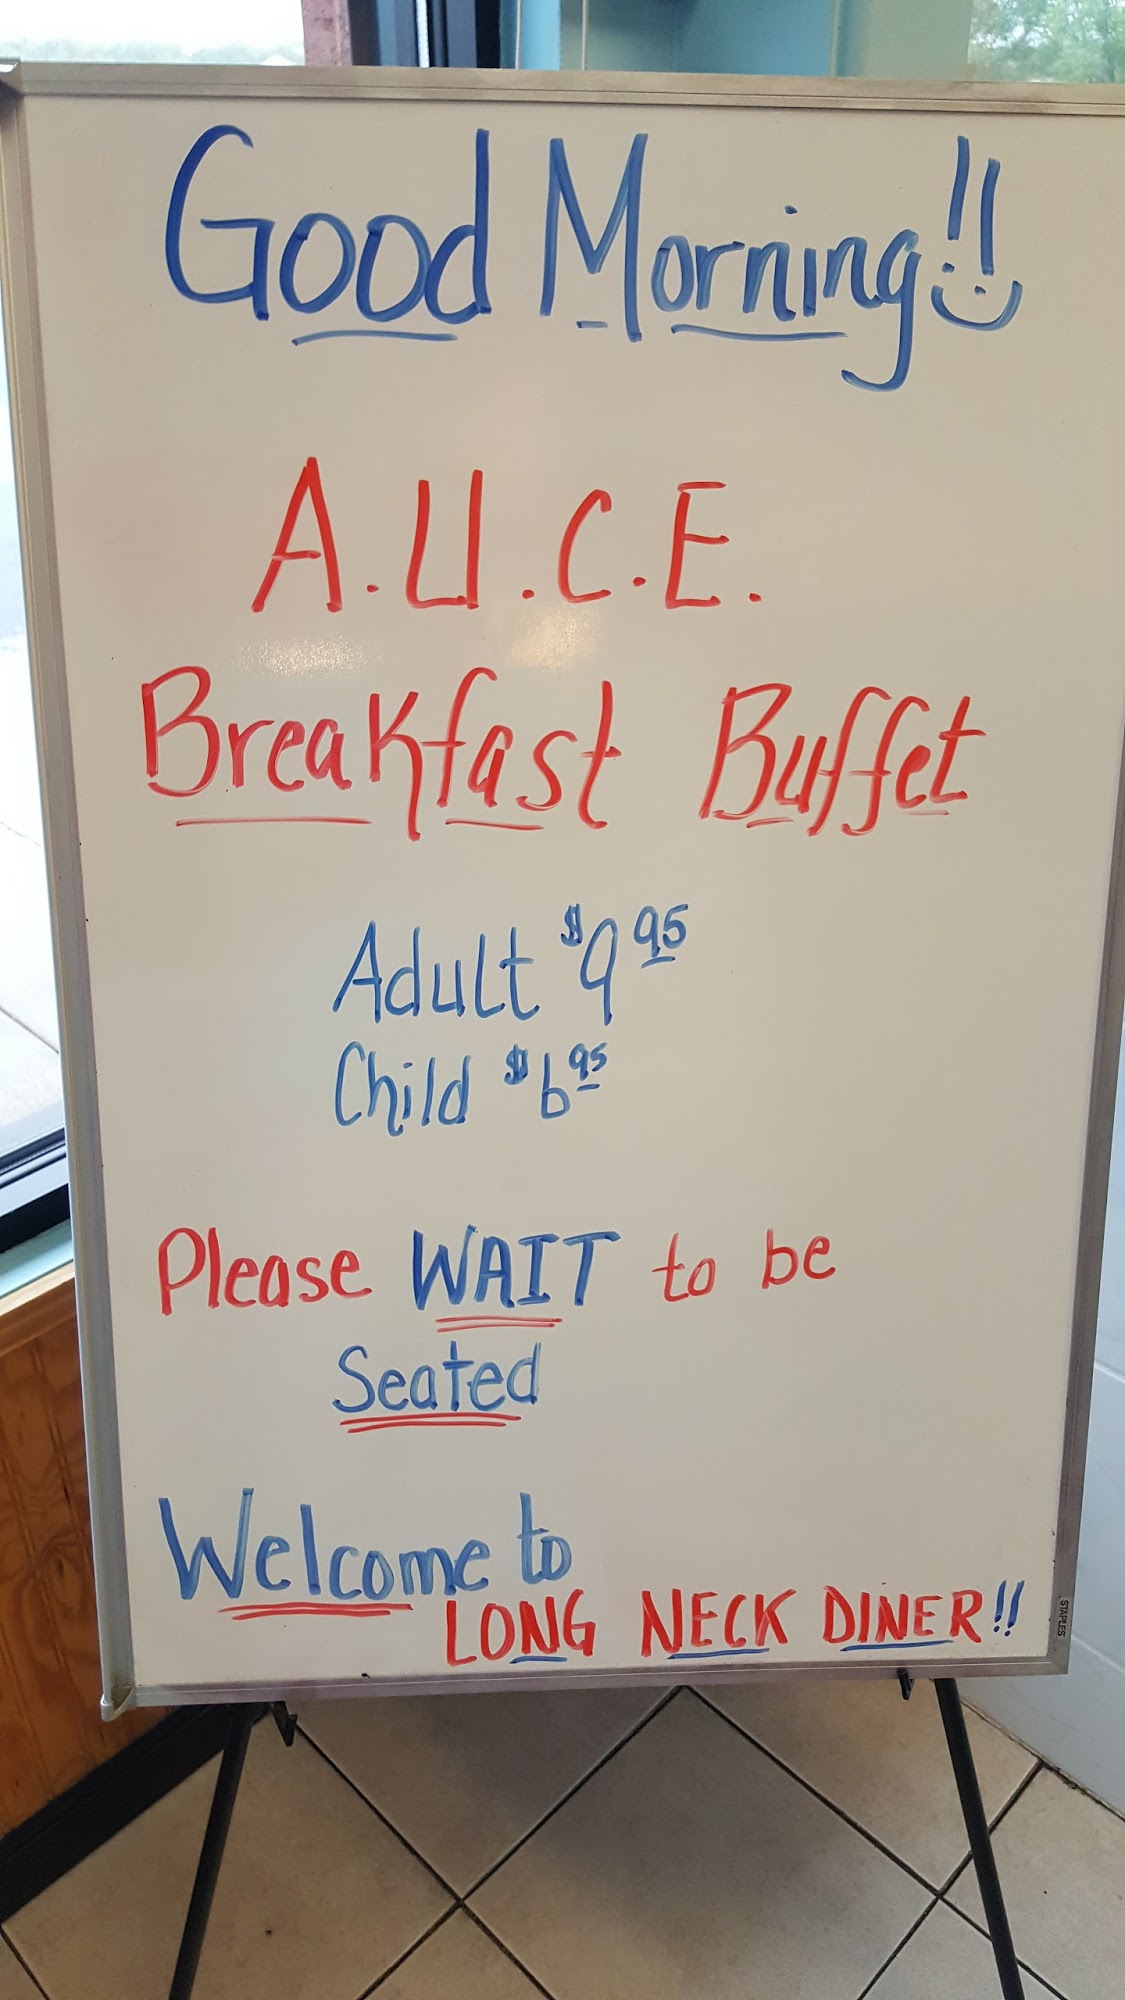 Good Morning!!
A.U.C.E.
Breakfast Buffet
Adult $9 95
Child $6 95
Please WAIT to be
Seated
Welcome to
LONG NECK DINER!!
STAPLES